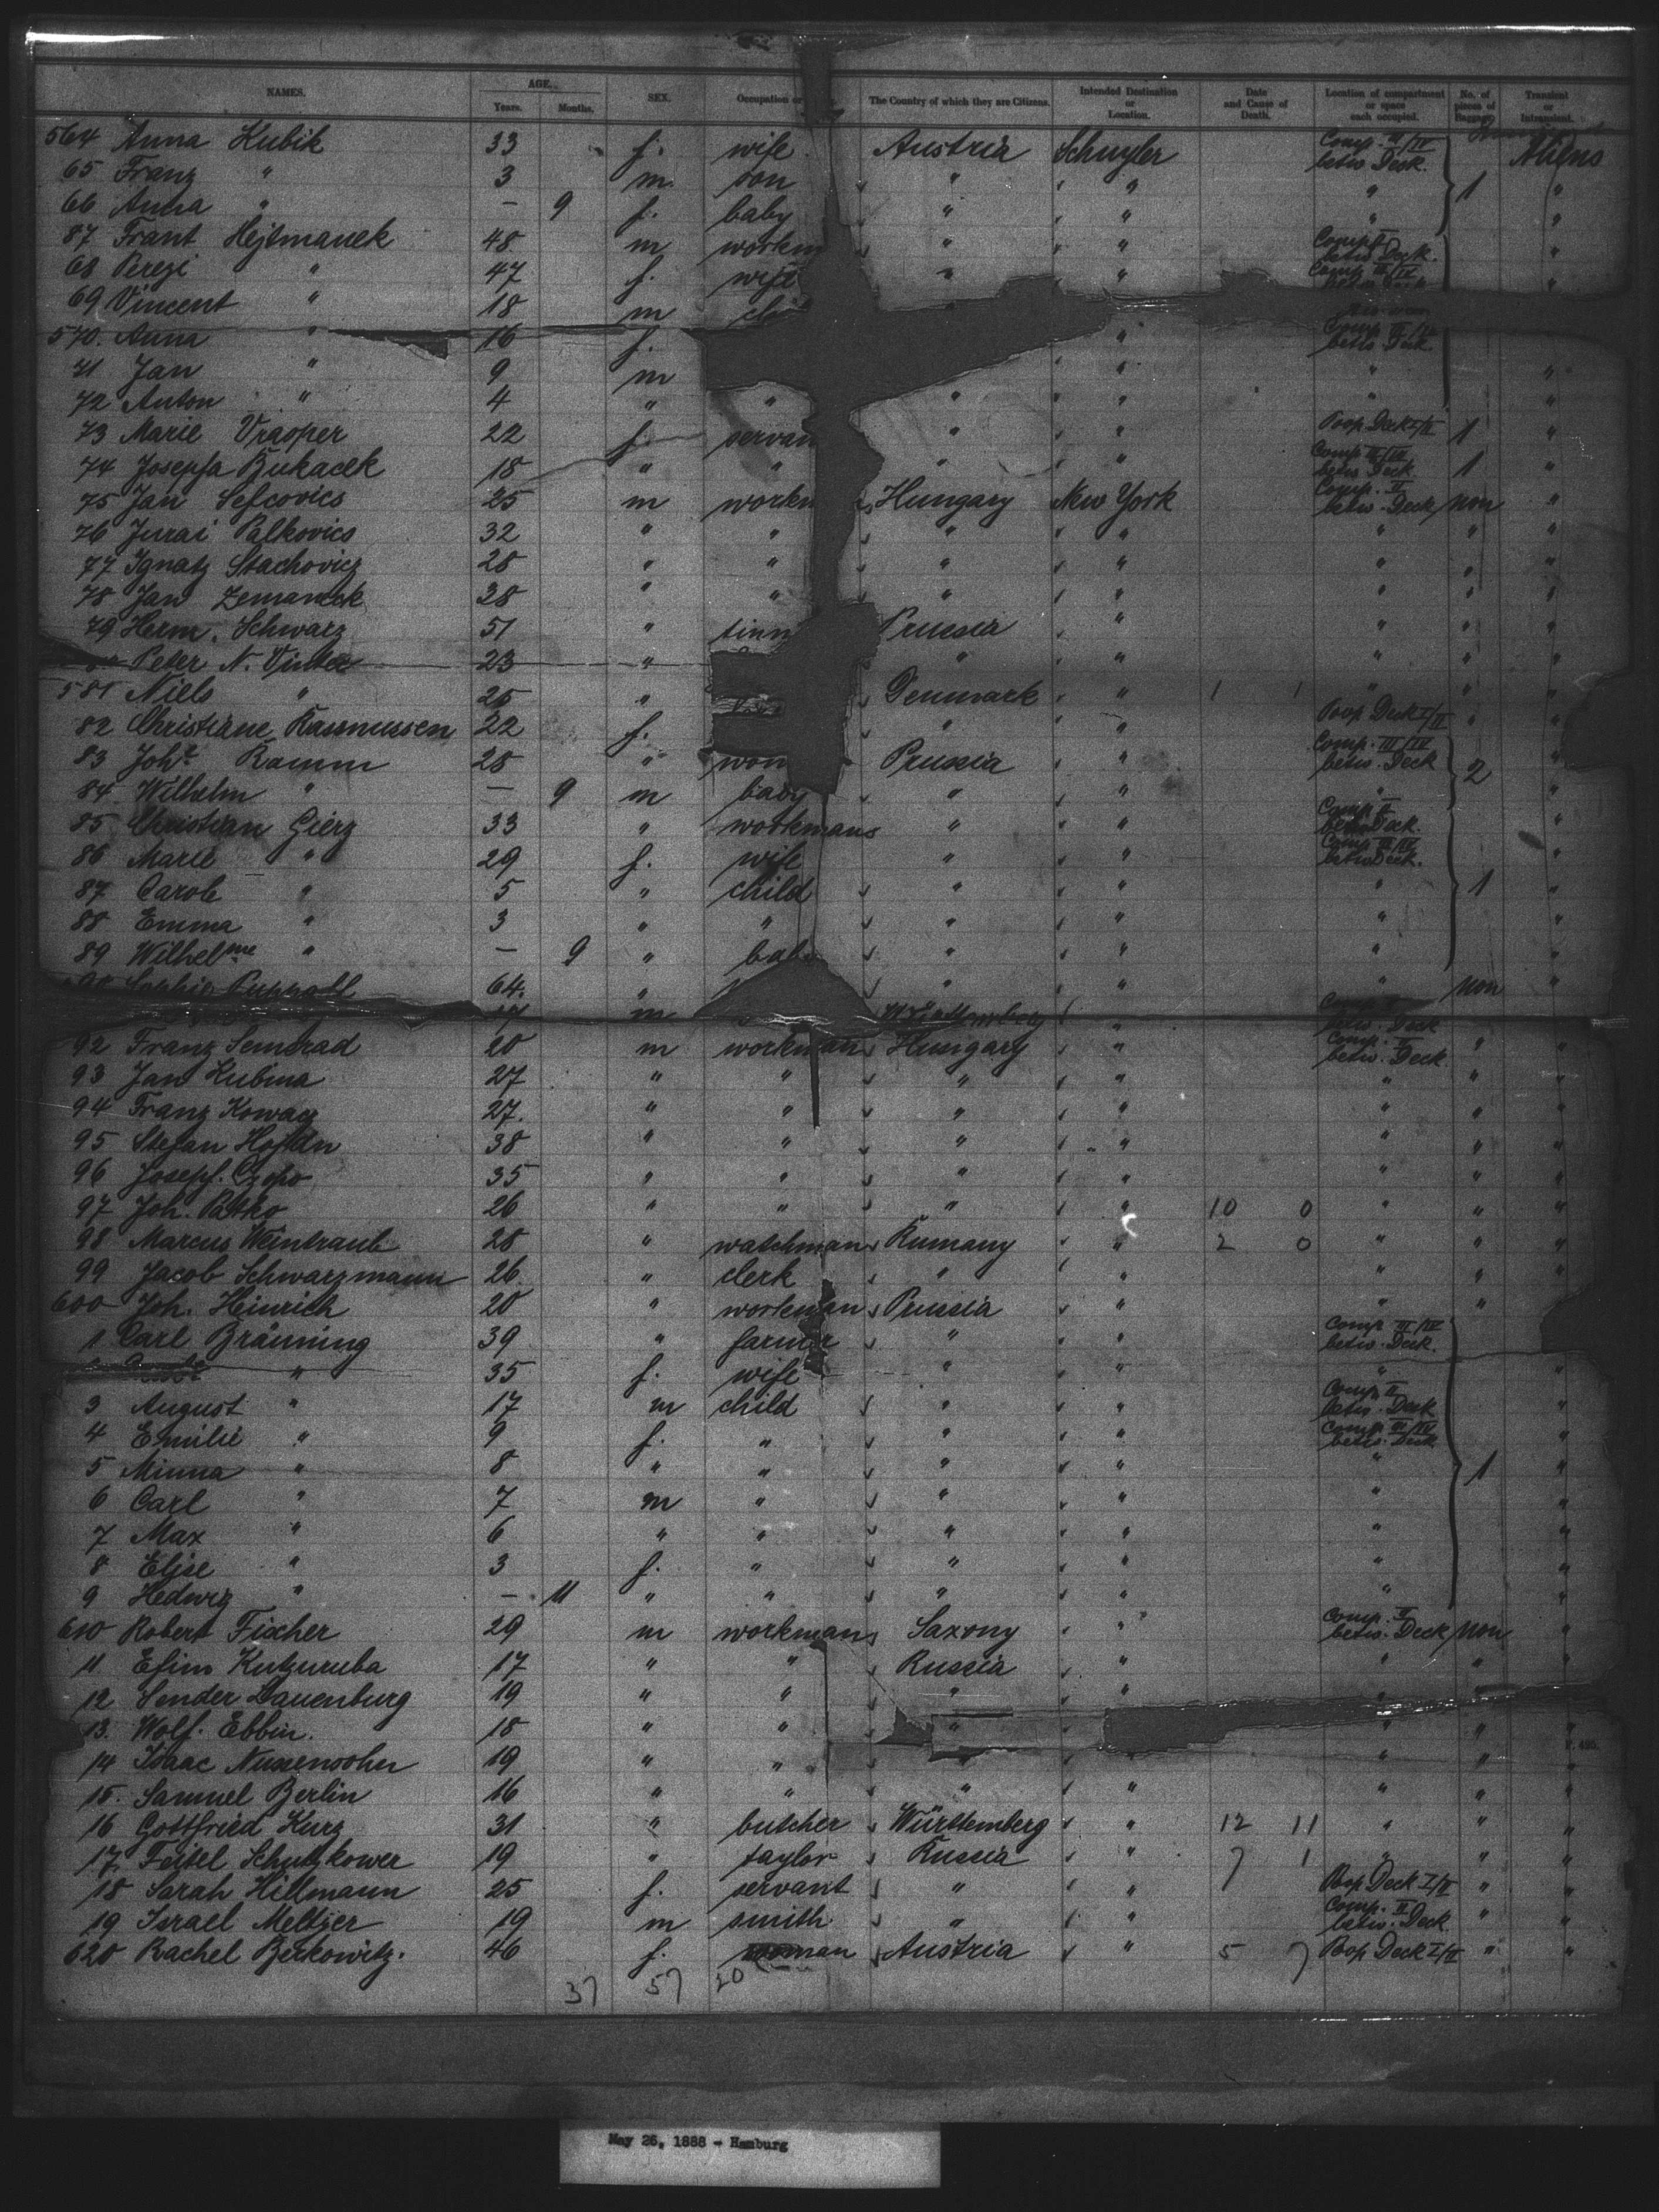 NAMES. AGE. Years. Months. SEX. Occupation or The Country of which they are Citizens. Intended Destination or Location. Date and Cause of Death. Location of compartment or space each occupied. No. of pieces of Baggage. Transient or Intransient.
564 Anna Kubik 33 f. wife Austria Schuyler Comp. III/IV betw. Deck. Aliens
65 Franz " 3 m. son " " " 1 "
66 Anna " - 9 f. baby " " " "
67 Frant Hejtmanek 48 m workm " " Comp II betw Deck. "
68 Perezi " 47 f. wife " " Comp III/IV "
69 Vincent " 18 m "
570. Anna " 16 f. " Comp II/IV betw Deck
71 Jan " 9 m " " "
72 Anton " 4 " " " " " "
73 Marie Vrasper 22 f. servan " " Poop Deck I/II 1 "
74 Josepha Bukacek 18 " " " " Comp III/IV betw Deck 1 "
75 Jan Sefcovics 25 m workm Hungary New York Comp. II betw. Deck non "
76 Jurai Palkovics 32 " " " " " " "
77 Ignatz Stachovicz 28 " " " " " " "
78 Jan Zemanek 38 " " " " " " "
79 Herm. Schwarz 51 " tinn Prussia " " " "
Peter N. Vinter 23 " " " " " "
581 Niels " 25 " Denmark " 1 1 " " "
82 Christiane Rasmussen 22 f. " " Poop Deck I/II "
83 Joh. Ramm 28 " wom Prussia " Comp. III/IV betw. Deck 2 "
84 Wilhelm " - 9 m baby " " " "
85 Christian Gierz 33 " workmans " " Comp II betw Deck. "
86 Marie " 29 f. wife " " Comp III/IV betw Deck. "
87 Carole " 5 " child " " " 1 "
88 Emma " 3 " " " " " "
89 Wilhelme " - 9 " bab " " "
90 Sophie 64. " " " " non "
m Württemberg " betw. Deck
92 Franz Semerad 20 m workman Hungary " Comp. II betw. Deck " "
93 Jan Kubina 27 " " " " " " "
94 Franz Kowacz 27. " " " " " " "
95 Stefan Hojdn 38 " " " " " " "
96 Josepf. Czopo 35 " " " " " " "
97 Joh. Patko 26 " " " " 10 0 " " "
98 Marcus Weintraub 28 " watchman Rumany " 2 0 " " "
99 Jacob Schwarzmann 26. " clerk " " " " "
600 Joh. Heinrich 20 " workman Prussia " " "
1 Carl Bräuning 39 " farmer " " Comp III/IV betw. Deck.
" 35 f. wife " " " "
3 August " 17 m child " " Comp II betw. Deck "
4 Emilie " 9 f. " " " Comp III/IV betw. Deck "
5 Minna " 8 " " " " " 1 "
6 Carl " 7 m " " " " "
7 Max " 6 " " " " " "
8 Elise " 3 f. " " " " "
9 Hedwig " - 11 " " " " " "
610 Robert Fischer 29 m workmans Saxony " Comp. II betw. Deck non "
11 Efim Kutzuruba 17 " " Russia " " " "
12 Sender Lauenburg 19 " " " " " "
13. Wolf. Ebbin. 18 " " " " " "
14 Isaac Nussensohn 19 " " " " " " "
15. Samuel Berlin 16 " " " " " " "
16 Gottfried Kurz 31 " butcher Württemberg " 12 11 " " "
17. Feitel Schutzkower 19 " taylor Russia " 7 1 " " "
18 Sarah Hillmann 25 f. servant " " Poop Deck I/II " "
19 Israel Meltzer 19 m smith " " Comp. II betw. Deck " "
620 Rachel Berkowitz. 46 f. woman Austria " 5 7 Poop Deck I/II " "
37 57 20
May 26, 1888 - Hamburg